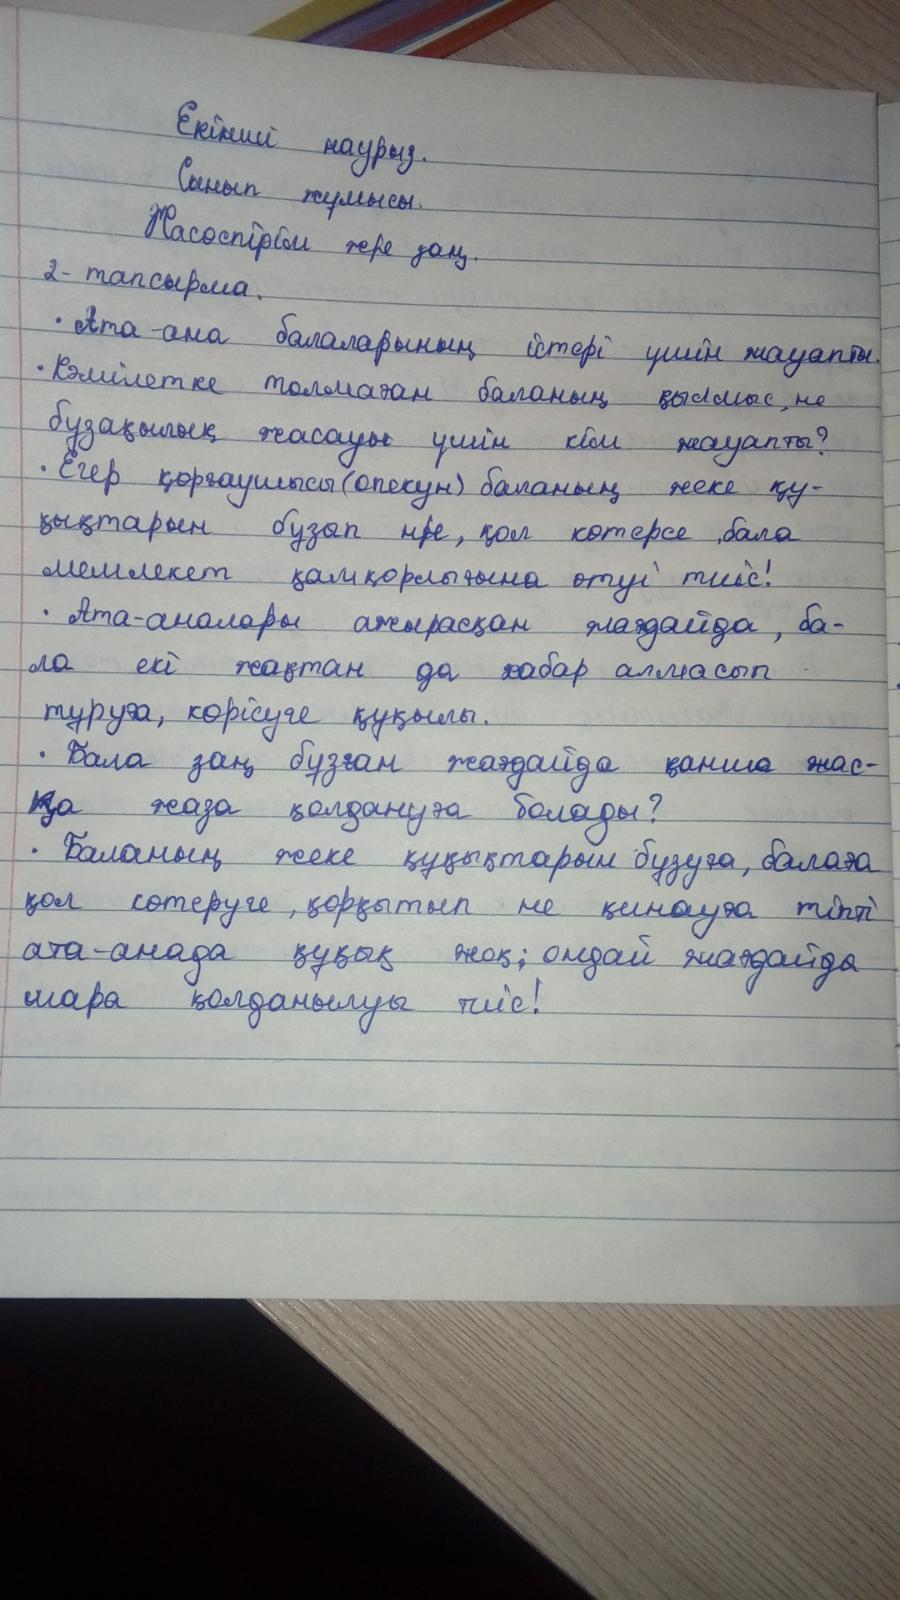 Екінші наурыз.
Сынып жұмысы.
Жасөспірім және заң.
2-тапсырма.
• Ата-ана балаларының істері үшін жауапты.
• Кәмілетке толмаған баланың қылмыс, не
бұзақылық жасауы үшін кім жауапты?
• Егер қорғаушысы (опекун) баланың жеке құ-
қықтарын бұзып нре, қол көтерсе, бала
мемлекет қамқорлығына өтуі тиіс!
• Ата-аналары ажырасқан жағдайда, ба-
ла екі жақтан да хабар алмасып
тұруға, көрісуге құқылы.
• Бала заң бұзған жағдайда қанша жас-
қа жаза қолдануға болады?
• Баланың жеке құқықтарын бұзуға, балаға
қол көтеруге, қорқытып не қинауға тіпті
ата-анада құқық жоқ; ондай жағдайда
шара қолданылуы тиіс!